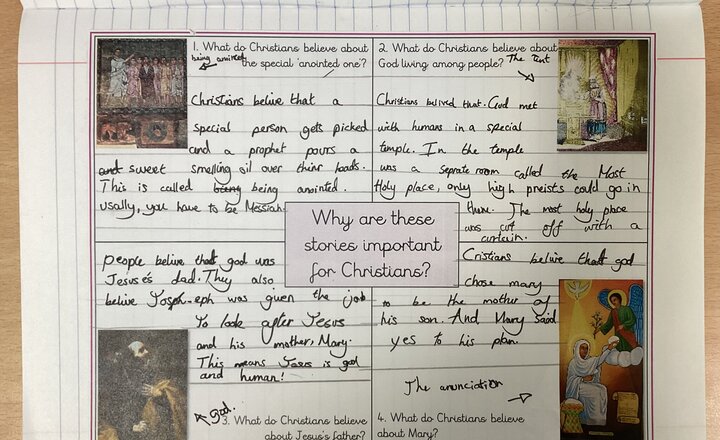 1. What do Christians believe about
the special 'anointed one'?
being anointed
Christians belive that a
special person gets picked
and a prophet pours a
and sweet smelling oil over their heads.
This is called being being anointed.
usally, you have to be Messiah.
2. What do Christians believe about
God living among people? The tent
Christians belived that. God met
with humans in a special
temple. In the temple
was a seprate room called the Most
Holy place, only high preists could go in
there. The most holy place
was cut off with a
curtein.
Why are these
stories important
for Christians?
people belive that god was
Jesus'es dad. They also
belive Joseph-eph was given the job
to look after Jesus
and his mother, Mary.
This means Jesus is god
and human!
God.
3. What do Christians believe
about Jesus's father?
Cristians belive that god
chose mary
to be the mother of
his son. And Mary said
yes to his plan.
The anunciation
4. What do Christians believe
about Mary?